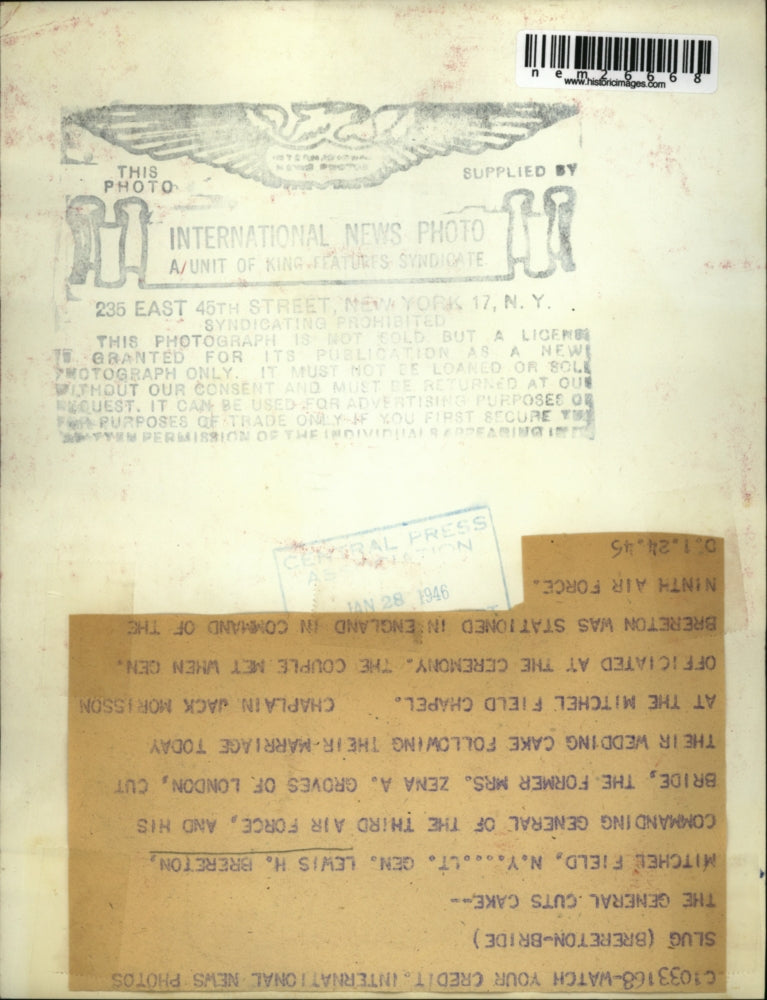 nem26668
www.historicimages.com
THIS
PHOTO
SUPPLIED BY
INTERNATIONAL NEWS PHOTO
A/UNIT OF KING FEATURES SYNDICATE
235 EAST 45TH STREET, NEW YORK 17, N. Y.
SYNDICATING PROHIBITED
THIS PHOTOGRAPH IS NOT SOLD BUT A LICENS
GRANTED FOR ITS PUBLICATION AS A NEW
PHOTOGRAPH ONLY. IT MUST NOT BE LOANED OR SOL
WITHOUT OUR CONSENT AND MUST BE RETURNED AT OU
REQUEST. IT CAN BE USED FOR ADVERTISING PURPOSES OR
FOR PURPOSES OF TRADE ONLY IF YOU FIRST SECURE
PERMISSION OF THE INDIVIDUALS APPEARING IN
CENTRAL PRESS
JAN 28 1946
C1033168-WATCH YOUR CREDIT.INTERNATIONAL NEWS PHOTOS
SLUG (BRERETON-BRIDE)
THE GENERAL CUTS CAKE--
MITCHEL FIELD, N.Y.....LT. GEN. LEWIS H. BRERETON,
COMMANDING GENERAL OF THE THIRD AIR FORCE, AND HIS
BRIDE, THE FORMER MRS. ZENA A. GROVES OF LONDON, CUT
THEIR WEDDING CAKE FOLLOWING THEIR MARRIAGE TODAY
AT THE MITCHEL FIELD CHAPEL. CHAPLAIN JACK MORISSON
OFFICIATED AT THE CEREMONY. THE COUPLE MET WHEN GEN.
BRERETON WAS STATIONED IN ENGLAND IN COMMAND OF THE
NINTH AIR FORCE.
1.24.45